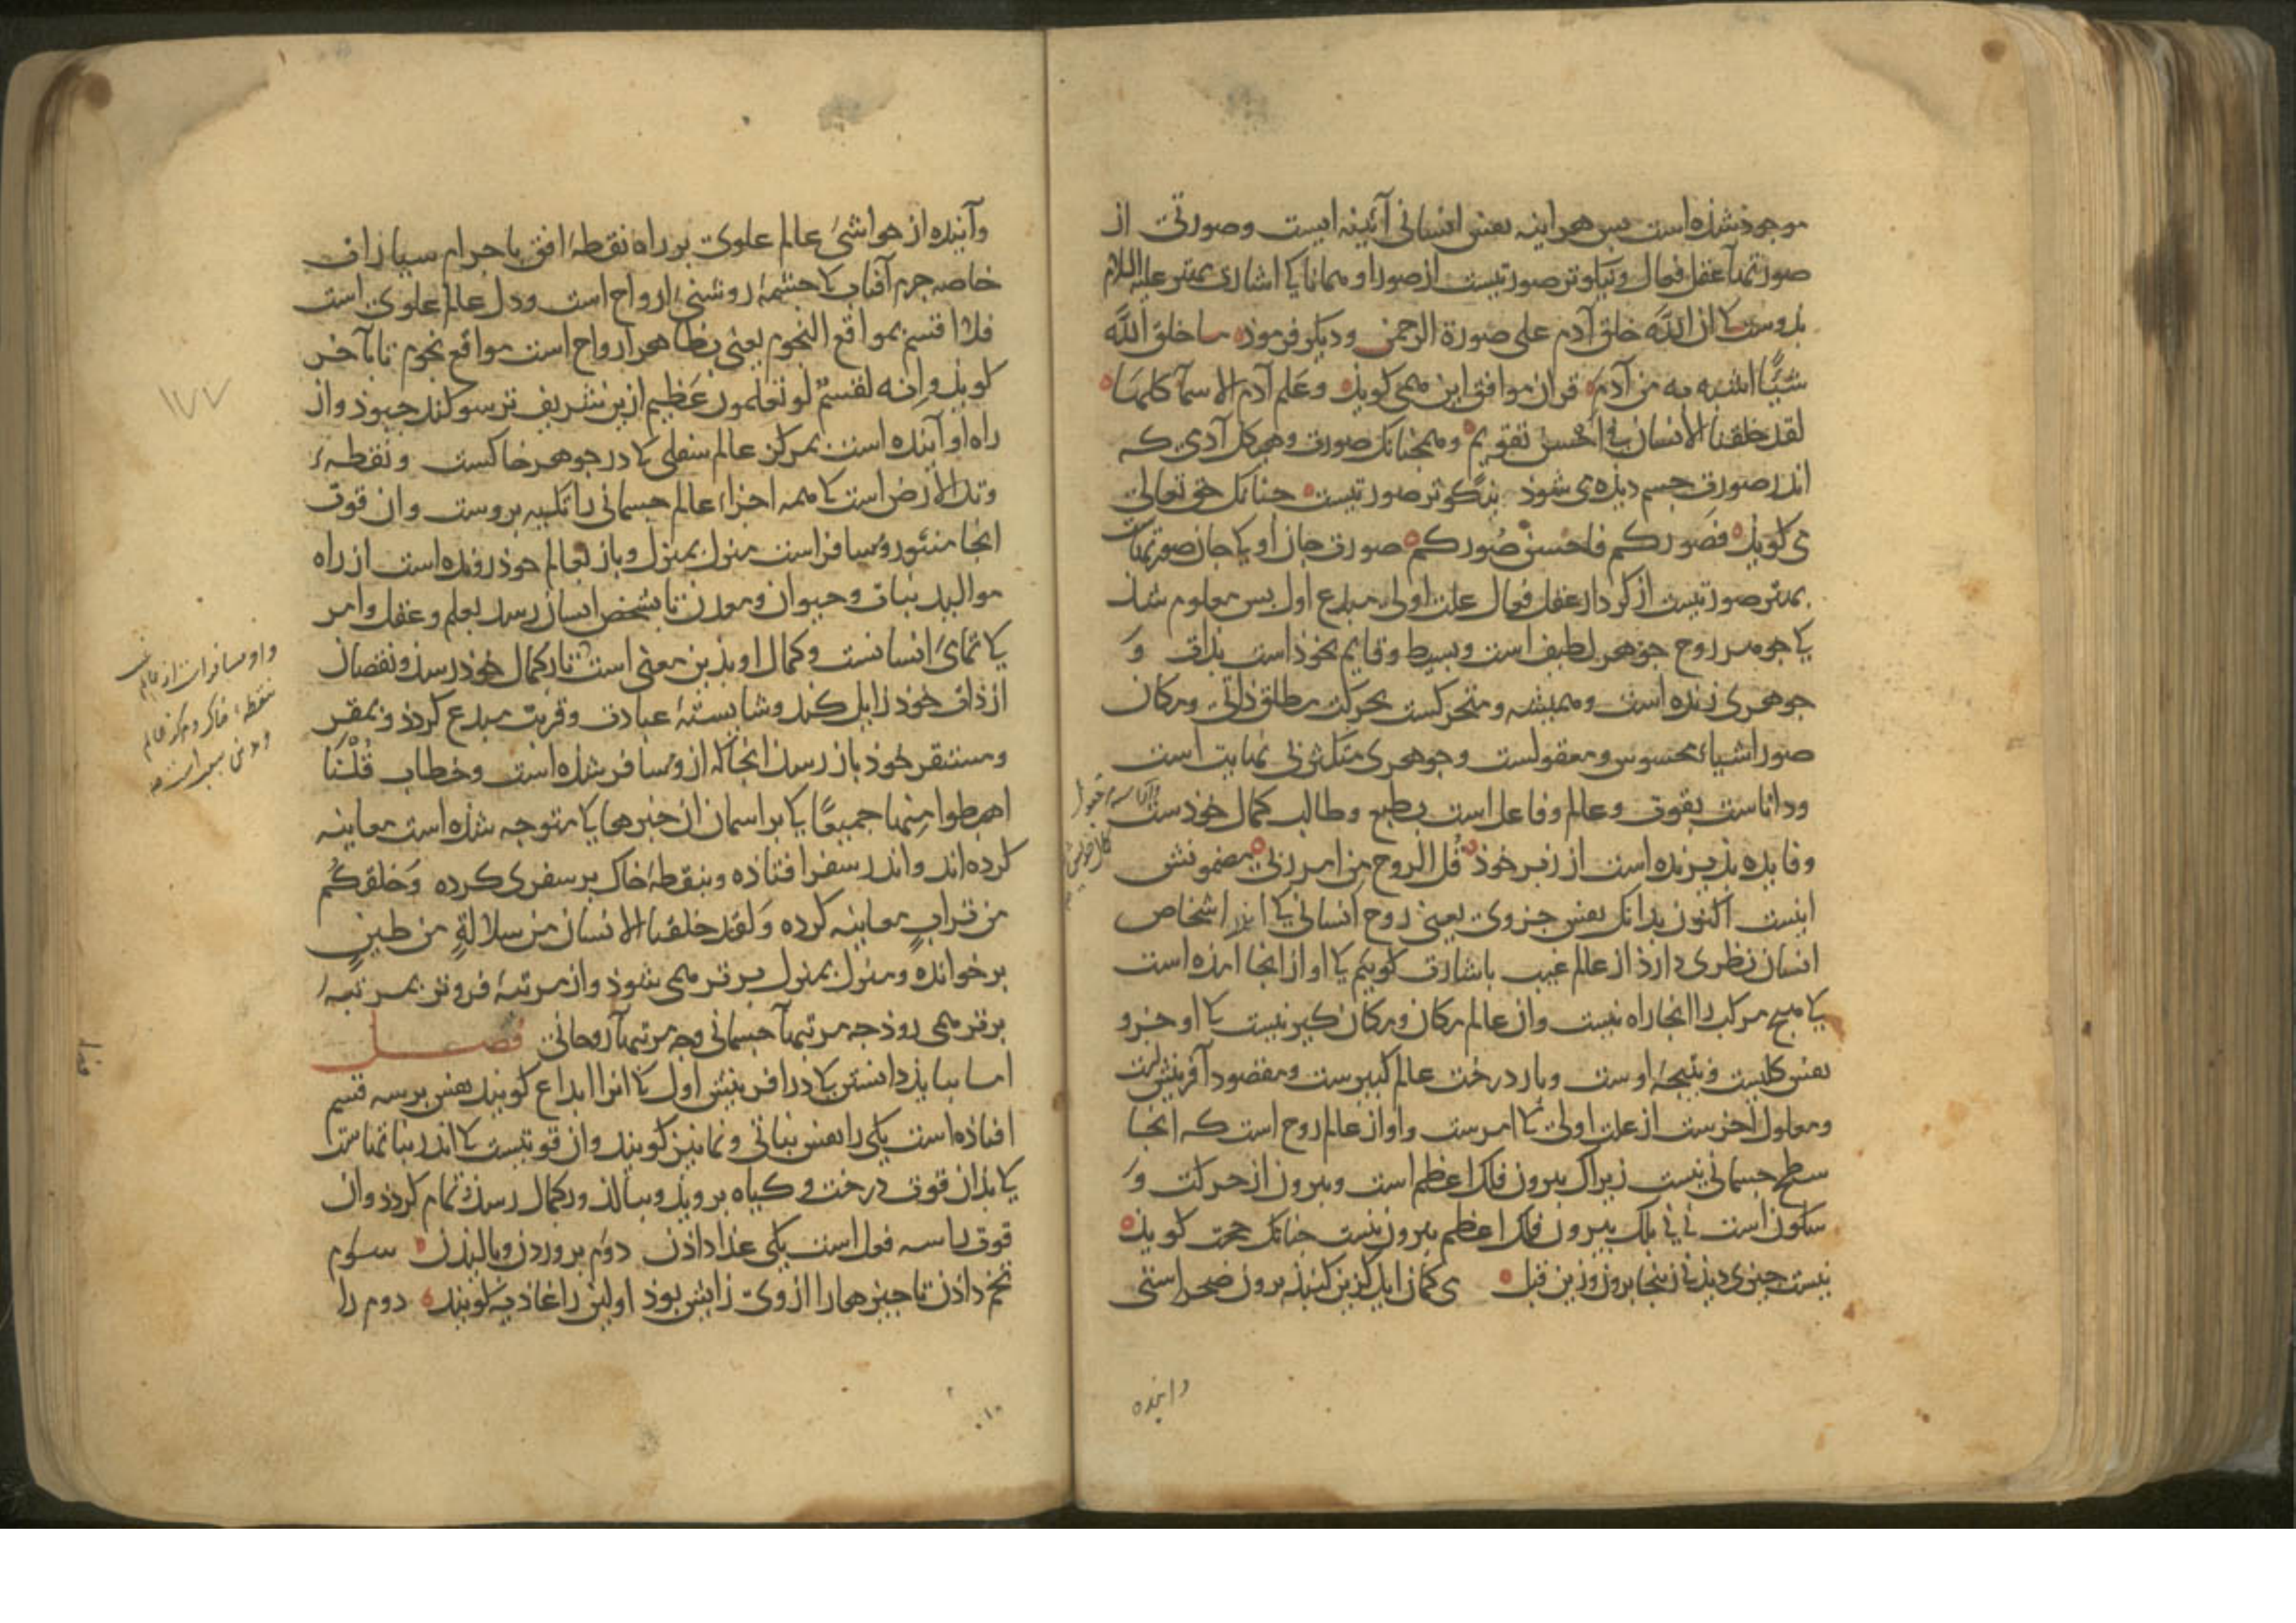 موجوذ شذه است بس هر اینه نفس انسانی آئینه ایست وصورتی از
صورتهاء عقل فعال ونیکوتر صورتیست از صور او وهمانا کی اشارت مهتر علیه السلام
بذوست کی ان الله خلق آدم علی صورة الرحمن ودیکر فرموذ ما خلق الله
شیًٔا اشبه به من آدم قران موافق این همی کویذ وعلم آدم الاسمآ کلها
لقد خلقنا الانسان فی احسن تقویم وهمچنانک صورت وهیکل آدمی که
اندر صورت جسم دیذه می شوذ نیکوتر صورتیست جنانک حق تعالی
می کویذ فصورکم فاحسن صورکم صورت جان او کی جان صورتهاست
بهتر صورتیست از کردار عقل فعال علت اولی مبدع اول بس معلوم شذ
کی جوهر روح جوهر لطیف است وبسیط وقایم بخوذ است بذات وَ
جوهری زنده است وهمیشه ومتحرکست بحرکت مطلق ذاتی ومکان
صور اشیاء محسوس ومعقولست وجوهری متکثر بی نهایت است
وداناست بقوت وعالم وفاعل است بطبع وطالب کمال خوذست
وفایده بذیرنده است از زبر خوذ قل الروح من امر ربی مضمونش
اینست اکنون بدانک نفس جزوی یعنی روح انسانی کی اندر اشخاص
انسان نظری دارذ از عالم غیب باشارت کوییم کی او از انجا امذه است
کی هیچ مرکب را انجا راه نیست وان عالم مکان ومکان کیر نیست کی او جزو
نفس کلیست ونتیجهٔ اوست وبار درخت عالم کبیرست ومقصود آفرینش است
ومعلول آخرست از علت اولی کی امرست واو از عالم روح است که انجا
سطح جسمانی نیست زیراک بیرون فلک اعظم است وبیرون از حرکت وَ
سکون است نی نی بلک بیرون فلک اعظم بیرون نیست جنانک حجت کویذ
نیست جیزی دیذنی زینجا برون وزین قبل می کمان ایذ کزین کنبذ برون صحراستی
وآینده
وآینده از حواشیٔ عالم علوی بر راه نقطهٔ افق باجرام سیارات
خاصه جرم آفتاب کی جشمهٔ روشنیٔ ارواح است ودل عالم علوی است
فلا اقسم بمواقع النجوم یعنی مظاهر ارواح است مواقع نجوم تا بآخر
کویذ وانه لقسمٌ لو تعلمون عَظیم ازین شریف تر سوکند جبوذ واز
راه او آینده است بمرکز عالم سفلی کی در جوهر خاکست ونقطهٔ
وتد الارض است کی همه اجزاء عالم جسمانی را تکیه بروست وان قوت
انجا منثور ومسافر است منزل بمنزل وباز بعالم خوذ رونده است از راه
موالید نبات وحیوان ومعدن تا بشخص انسان رسد بعلم وعقل وامر
کی تمامیٔ انسانست وکمال او بذین معنی است تا بکمال خوذ رسذ ونقصان
از ذات خوذ زایل کند وشایستهٔ عبادت وقربت مبدع کردذ وبمقر
ومستقر خوذ باز رسذ انجا که از ومسافر شذه است وخطاب قُلْنَا
اهبطوا مِنها جمیعًا کی بر اسمان از جیزها کی متوجه شذه است معاینه
کرده اند واندر سفر افتاذه وبنقطهٔ خاک بر سفری کرده وَخلقکُم
من ترابٍ معاینه کرده وَلقد خلقنا الانسان من سلالةٍ من طینٍ
برخوانده ومنزل بمنزل برتر همی شوذ واز مرتبهٔ فروتر بمرتبهٔ
برتر همی روذ جه مرتبهاء جسمانی وجه مرتبهاء روحانی فصل
اما ببایذ دانستن کی در افرینش اول کی انرا ابداع کویند نفس بر سه قسم
افتاذه است یکی را نفس نباتی ونمایین کویند وان قوتیست کی اندر نباتهاست
کی بذان قوت درخت وکیاه برویذ وببالذ وبکمال رسذ وتمام کردذ وان
قوت را سه فعل است یکی غذا داذن دوم بروردن وبالیدن سوم
تخم داذن تا جیزها را از وی زایش بوذ اولین را غاذیه کویند دوم را
واو مسافر است از عالم
نقطهٔ خاک ومرکز عالم
۱۷۷